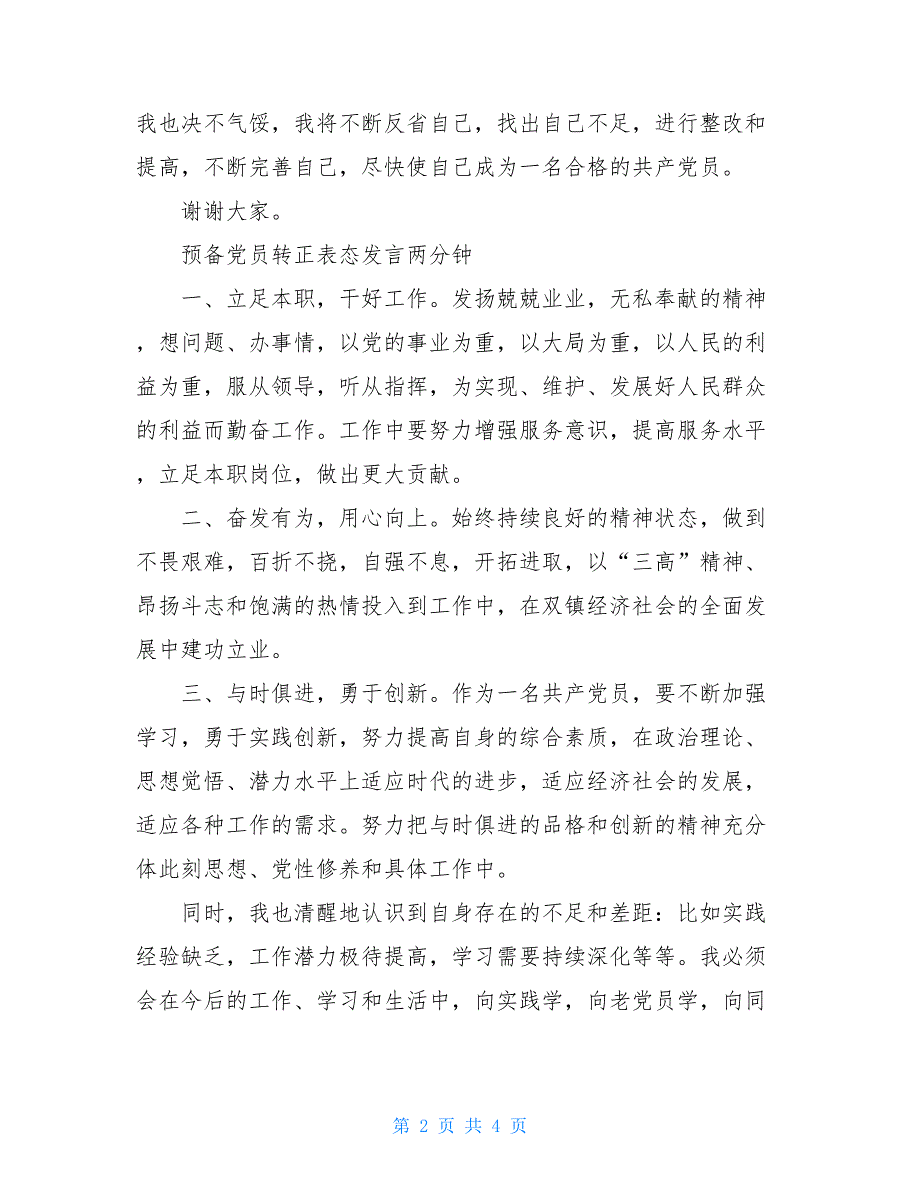 我也决不气馁，我将不断反省自己，找出自己不足，进行整改和
提高，不断完善自己，尽快使自己成为一名合格的共产党员。
谢谢大家。
预备党员转正表态发言两分钟
一、立足本职，干好工作。发扬兢兢业业，无私奉献的精神
，想问题、办事情，以党的事业为重，以大局为重，以人民的利
益为重，服从领导，听从指挥，为实现、维护、发展好人民群众
的利益而勤奋工作。工作中要努力增强服务意识，提高服务水平
，立足本职岗位，做出更大贡献。
二、奋发有为，用心向上。始终持续良好的精神状态，做到
不畏艰难，百折不挠，自强不息，开拓进取，以“三高”精神、
昂扬斗志和饱满的热情投入到工作中，在双镇经济社会的全面发
展中建功立业。
三、与时俱进，勇于创新。作为一名共产党员，要不断加强
学习，勇于实践创新，努力提高自身的综合素质，在政治理论、
思想觉悟、潜力水平上适应时代的进步，适应经济社会的发展，
适应各种工作的需求。努力把与时俱进的品格和创新的精神充分
体此刻思想、党性修养和具体工作中。
同时，我也清醒地认识到自身存在的不足和差距：比如实践
经验缺乏，工作潜力极待提高，学习需要持续深化等等。我必须
会在今后的工作、学习和生活中，向实践学，向老党员学，向同
第 2 页 共 4 页